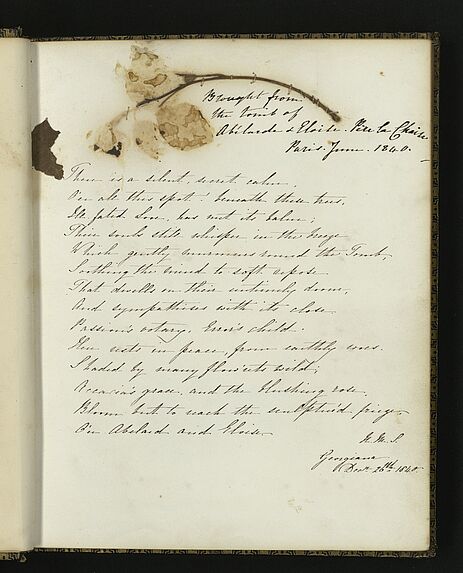 Brought from
the tomb of
Abilarde & Eloise. Père la Chaise
Paris. June. 1840.
There is a silent, secret calm,
O'er all this spot! beneath these trees,
Ill fated Love, has not its balm;
Their souls still whisper in the breeze
Which gently murmurs round the Tomb,
Soothing the mind to soft repose
That dwells on their untimely doom,
And sympathises with its close.
Passion's votary, Error's child.
Here rests in peace, from earthly woes.
Shaded by many flow'rets wild;
Accacia's grace, and the blushing rose,
Bloom but to reach the sculptur'd fringe,
O'er Abelard and Eloise
M. S.
Georgiana
Decr. 26th 1840.